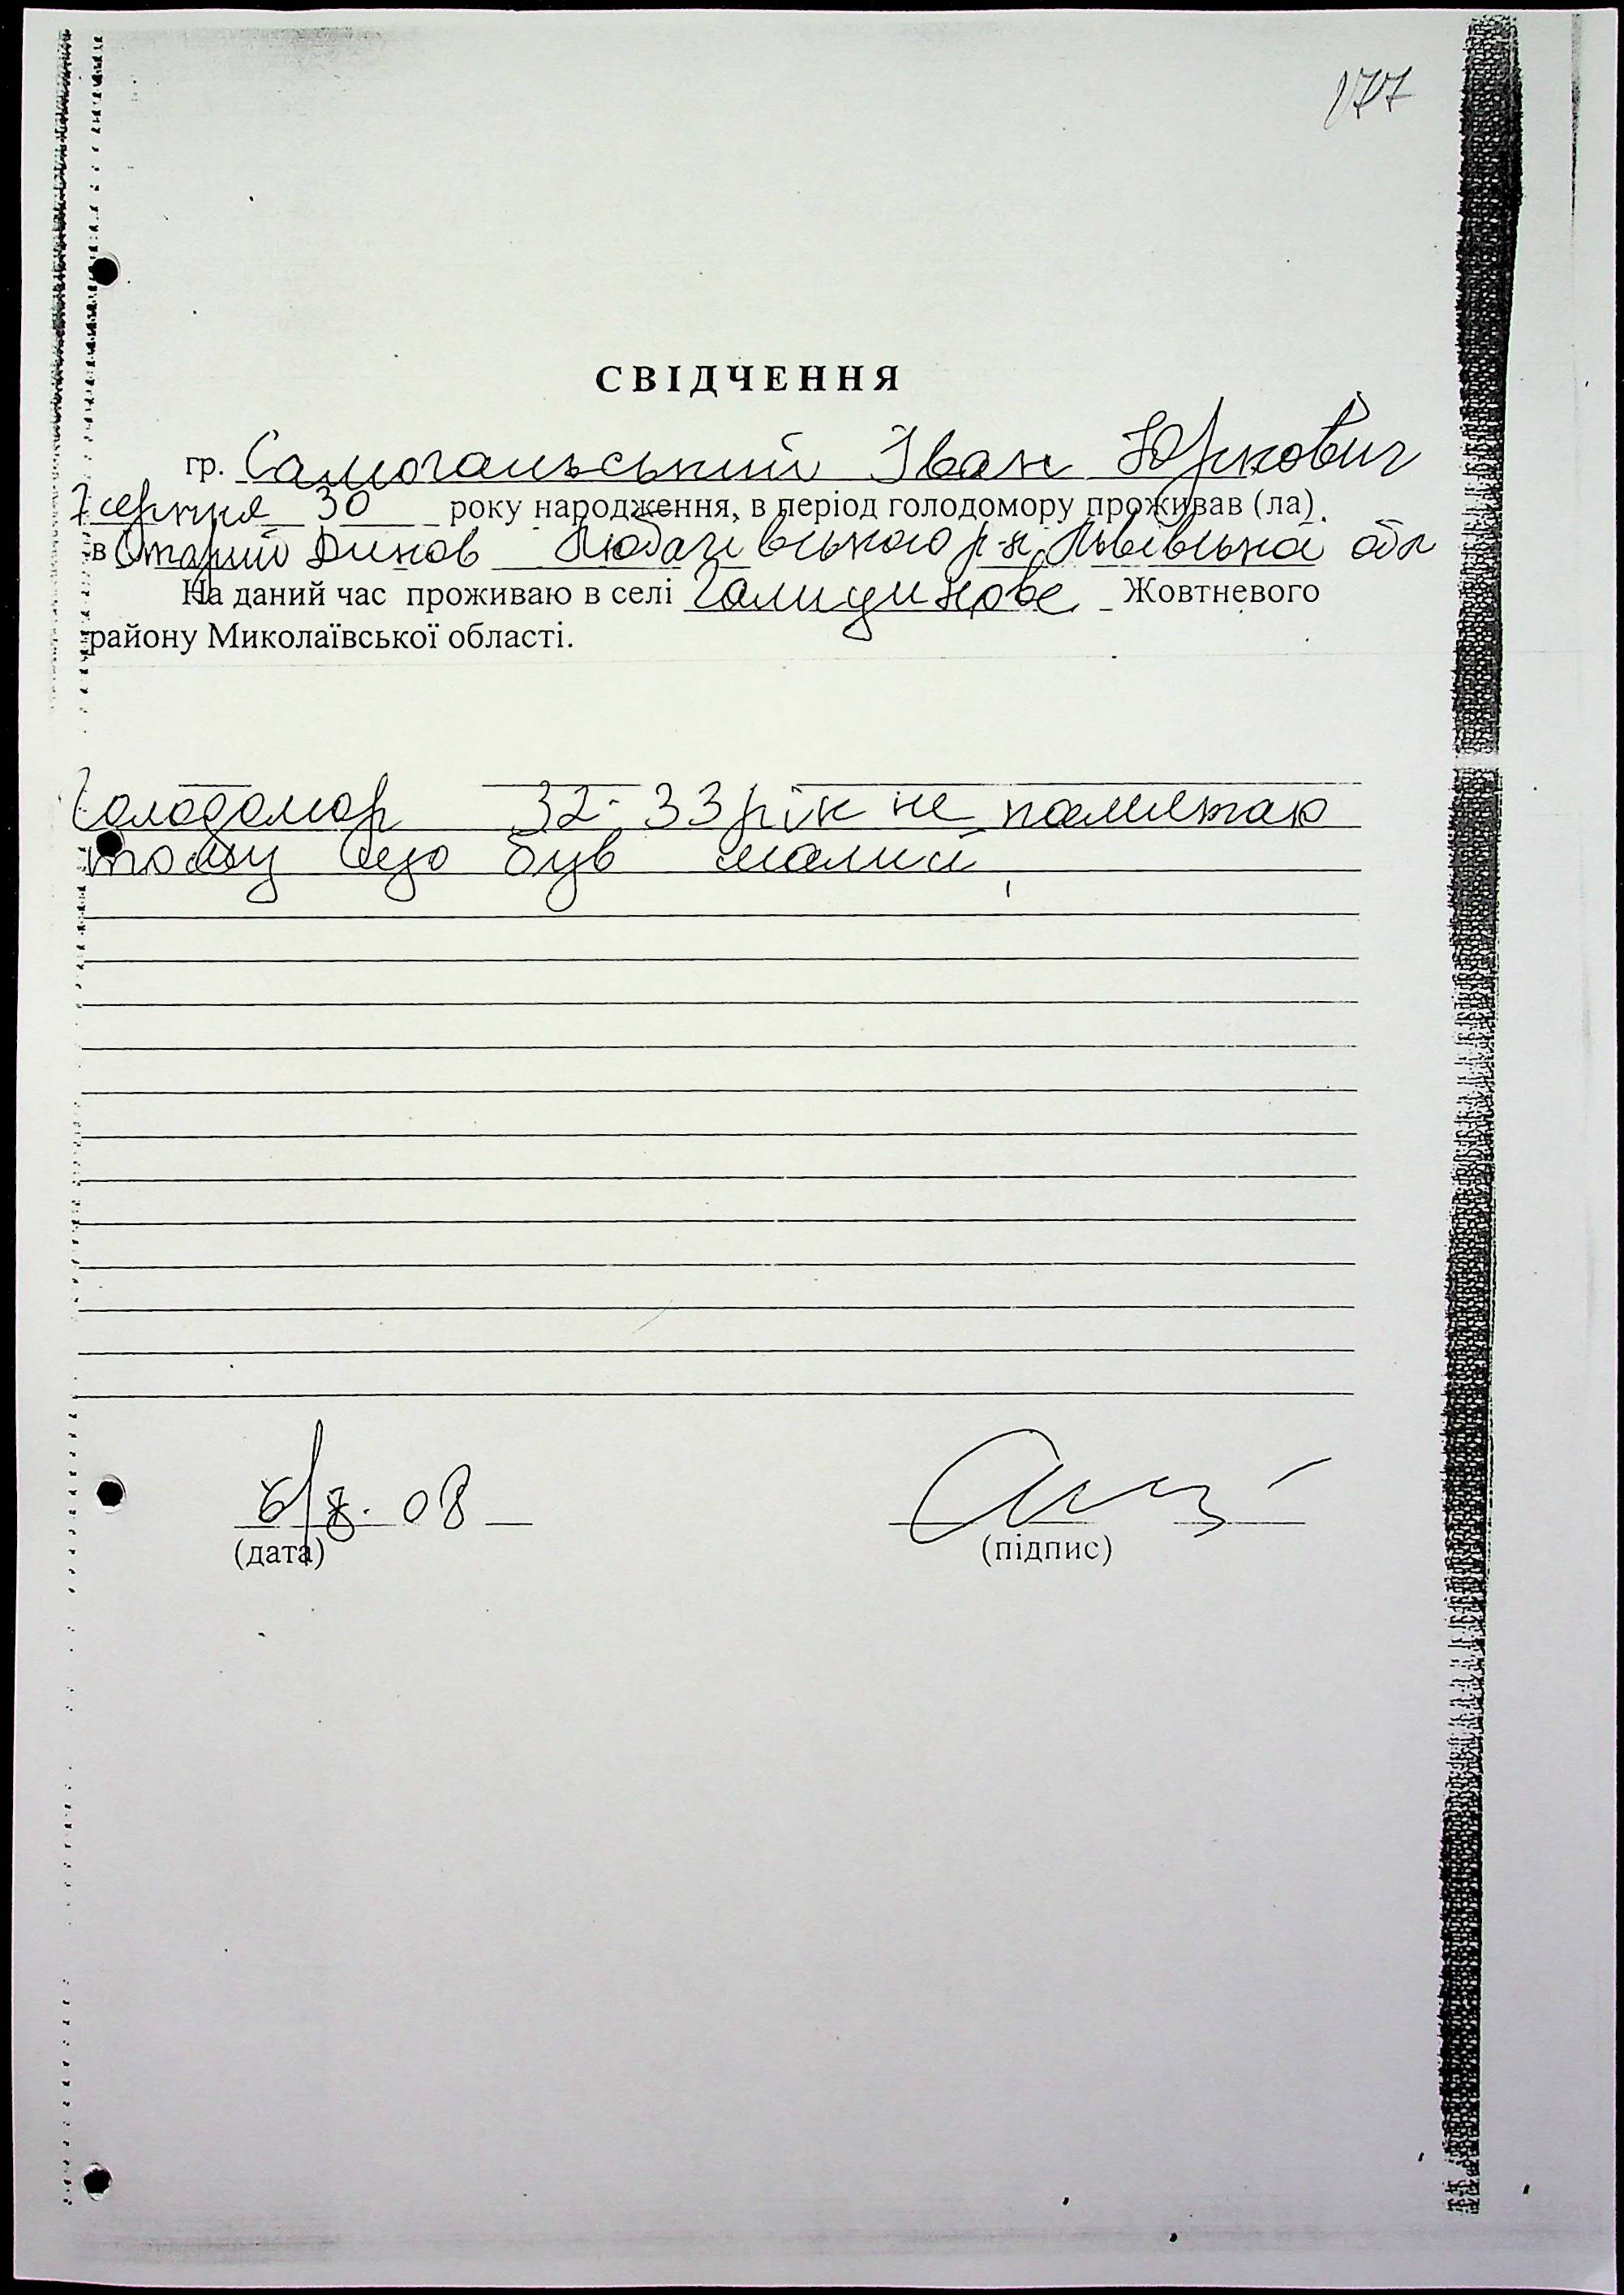 177
СВІДЧЕННЯ
гр. Самогальський Іван Юркович
7 серпня 30 року народження, в період голодомору проживав (ла)
в Старий Диков Любачівського р-н, Львівська обл
На даний час проживаю в селі Галицинове Жовтневого
району Миколаївської області.
Голодомор 32-33 рік не памятаю
тому що був малий,
08
(дата) (підпис)